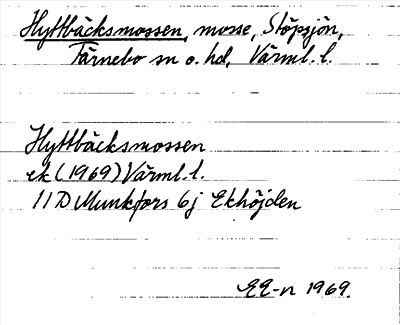 Hyttbäcksmossen, mosse, Stöpsjön,
Färnebo sn o. hd, Värml. l.
Hyttbäcksmossen
ek (1969) Värml. l.
11 D Munkfors 6j Ekhöjden
EE-n 1969.